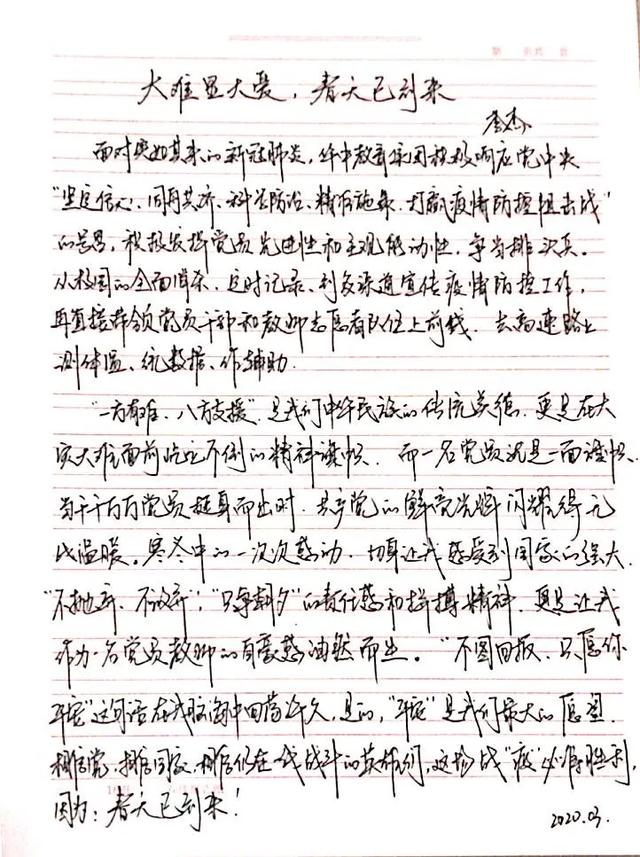 大难显大爱，春天已到来
李杰
面对突如其来的新冠肺炎，华中教育集团积极响应党中央
"坚定信心、同舟共济、科学防治、精准施策、打赢疫情防控阻击战"
的号召，积极发挥党员先进性和主观能动性，争当排头兵。
从校园的全面消杀、定时记录、利多渠道宣传疫情防控工作，
再直接带领党员干部和教师志愿者队伍上前线，去高速路上
测体温、统数据、作辅助。
"一方有难，八方支援"是我们中华民族的传统美德，更是在大
灾大难面前屹立不倒的精神旗帜。而一名党员就是一面旗帜，
当千千万万党员挺身而出时，共产党的鲜亮光辉闪耀得无
比温暖。寒冬中的一次次感动，切身让我感受到国家的强大，
"不抛弃、不放弃"，"只争朝夕"的责任感和拼搏精神，更是让我
作为一名党员教师的自豪感油然而生。"不图回报，只愿你
平安"这句话在我脑海中回荡许久，是的，"平安"是我们最大的愿望，
相信党，相信国家，相信仍在一线战斗的英雄们，这场战"疫"必得胜利，
因为：春天已到来！
2020.03.